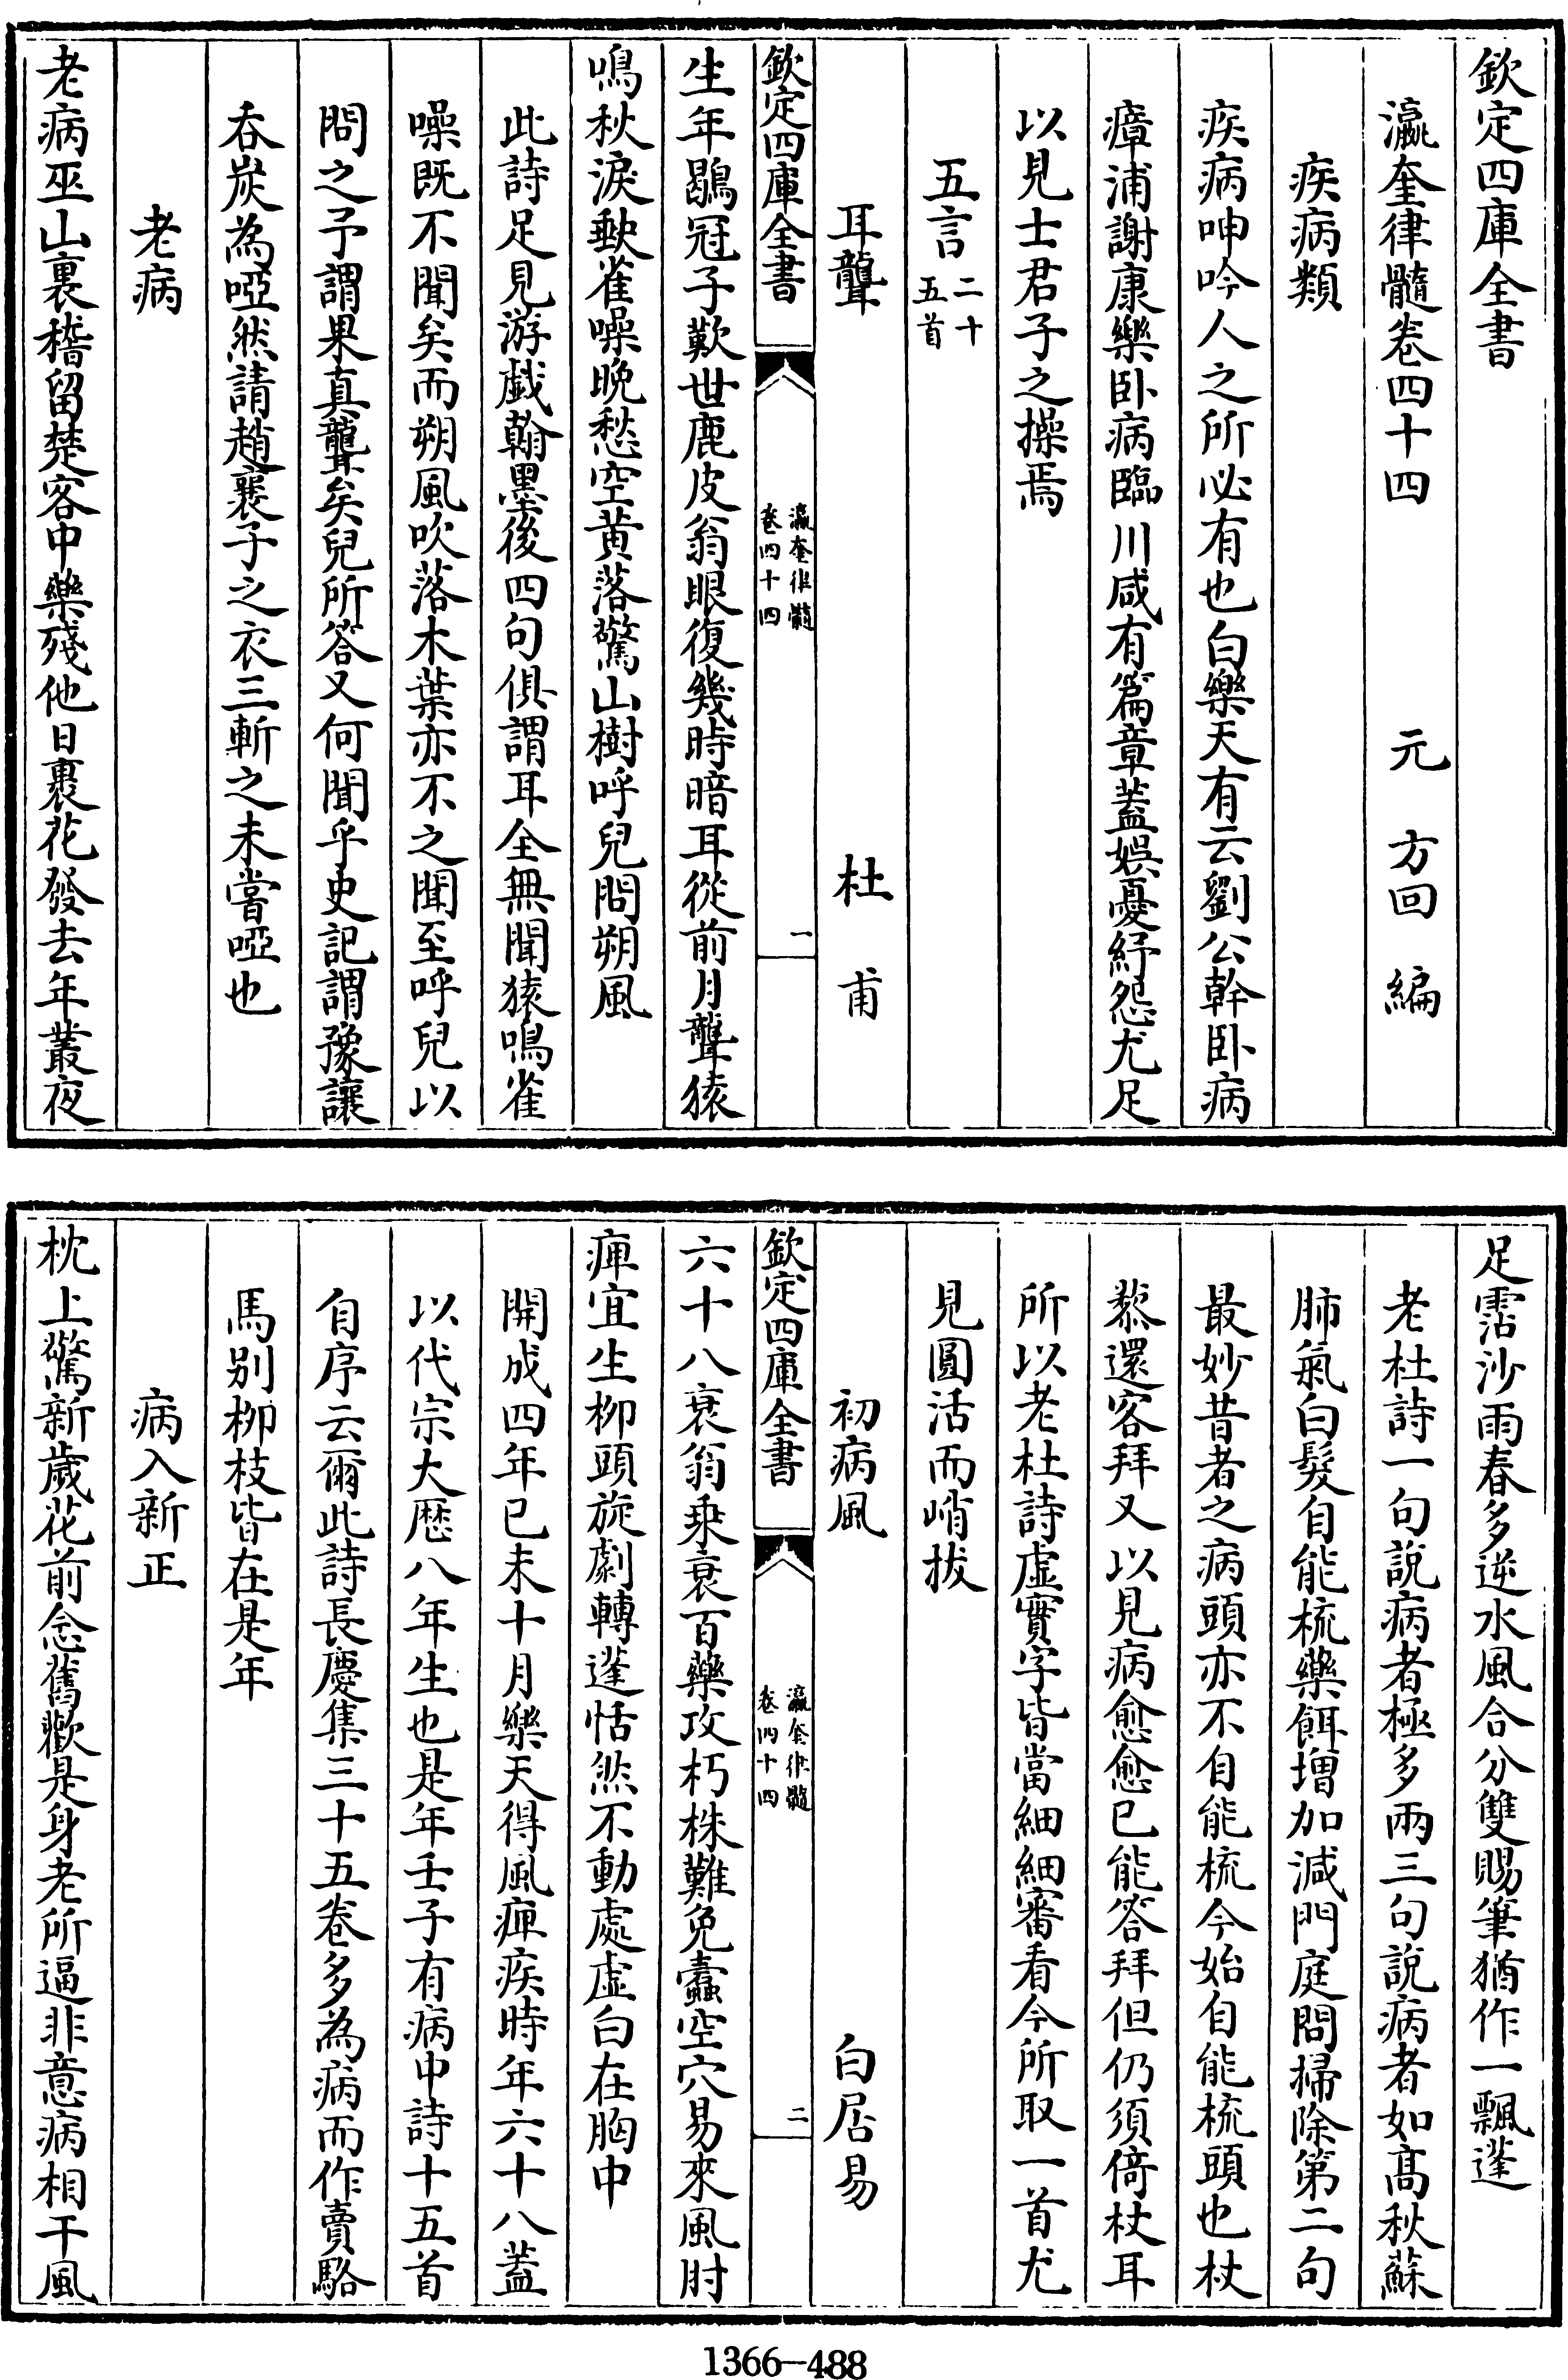 欽定四庫全書
瀛奎律髓卷四十四
元 方回 編
疾病類
疾病呻吟人之所必有也白樂天有云劉公幹卧病
瘴浦謝康樂卧病臨川咸有篇章蓋娱憂紓怨尤足
以見士君子之操焉
五言二十五首
耳聾 杜甫
欽定四庫全書
瀛奎律髓
卷四十四
一
生年鶡冠子歎世鹿皮翁眼復幾時暗耳從前月聾猿
鳴秋淚缺雀噪晚愁空黄落驚山樹呼兒問朔風
此詩足見游戲翰墨後四句俱謂耳全無聞猿鳴雀
噪既不聞矣而朔風吹落木葉亦不之聞至呼兒以
問之予謂果真聾矣兒所答又何聞乎史記謂豫讓
吞炭為啞然請趙襄子之衣三斬之未嘗啞也
老病
老病巫山裏稽留楚客中藥殘他日裹花發去年叢夜
足霑沙雨春多逆水風合分雙賜筆猶作一飄蓬
老杜詩一句說病者極多兩三句說病者如高秋蘇
肺氣白髮自能梳藥餌增加減門庭悶掃除第二句
最妙昔者之病頭亦不自能梳今始自能梳頭也杖
藜還客拜又以見病愈愈已能答拜但仍須倚杖耳
所以老杜詩虛實字皆當細細審看今所取一首尤
見圓活而峭拔
初病風 白居易
欽定四庫全書
瀛奎律髓
卷四十四
二
六十八衰翁乗衰百藥攻朽株難免蠹空穴易來風肘
痺宜生栁頭旋劇轉蓬恬然不動處虛白在胸中
開成四年已未十月樂天得風痺疾時年六十八蓋
以代宗大厯八年生也是年壬子有病中詩十五首
自序云爾此詩長慶集三十五卷多為病而作賣駱
馬别栁枝皆在是年
病入新正
枕上驚新歲花前念舊歡是身老所逼非意病相干風
1366-488